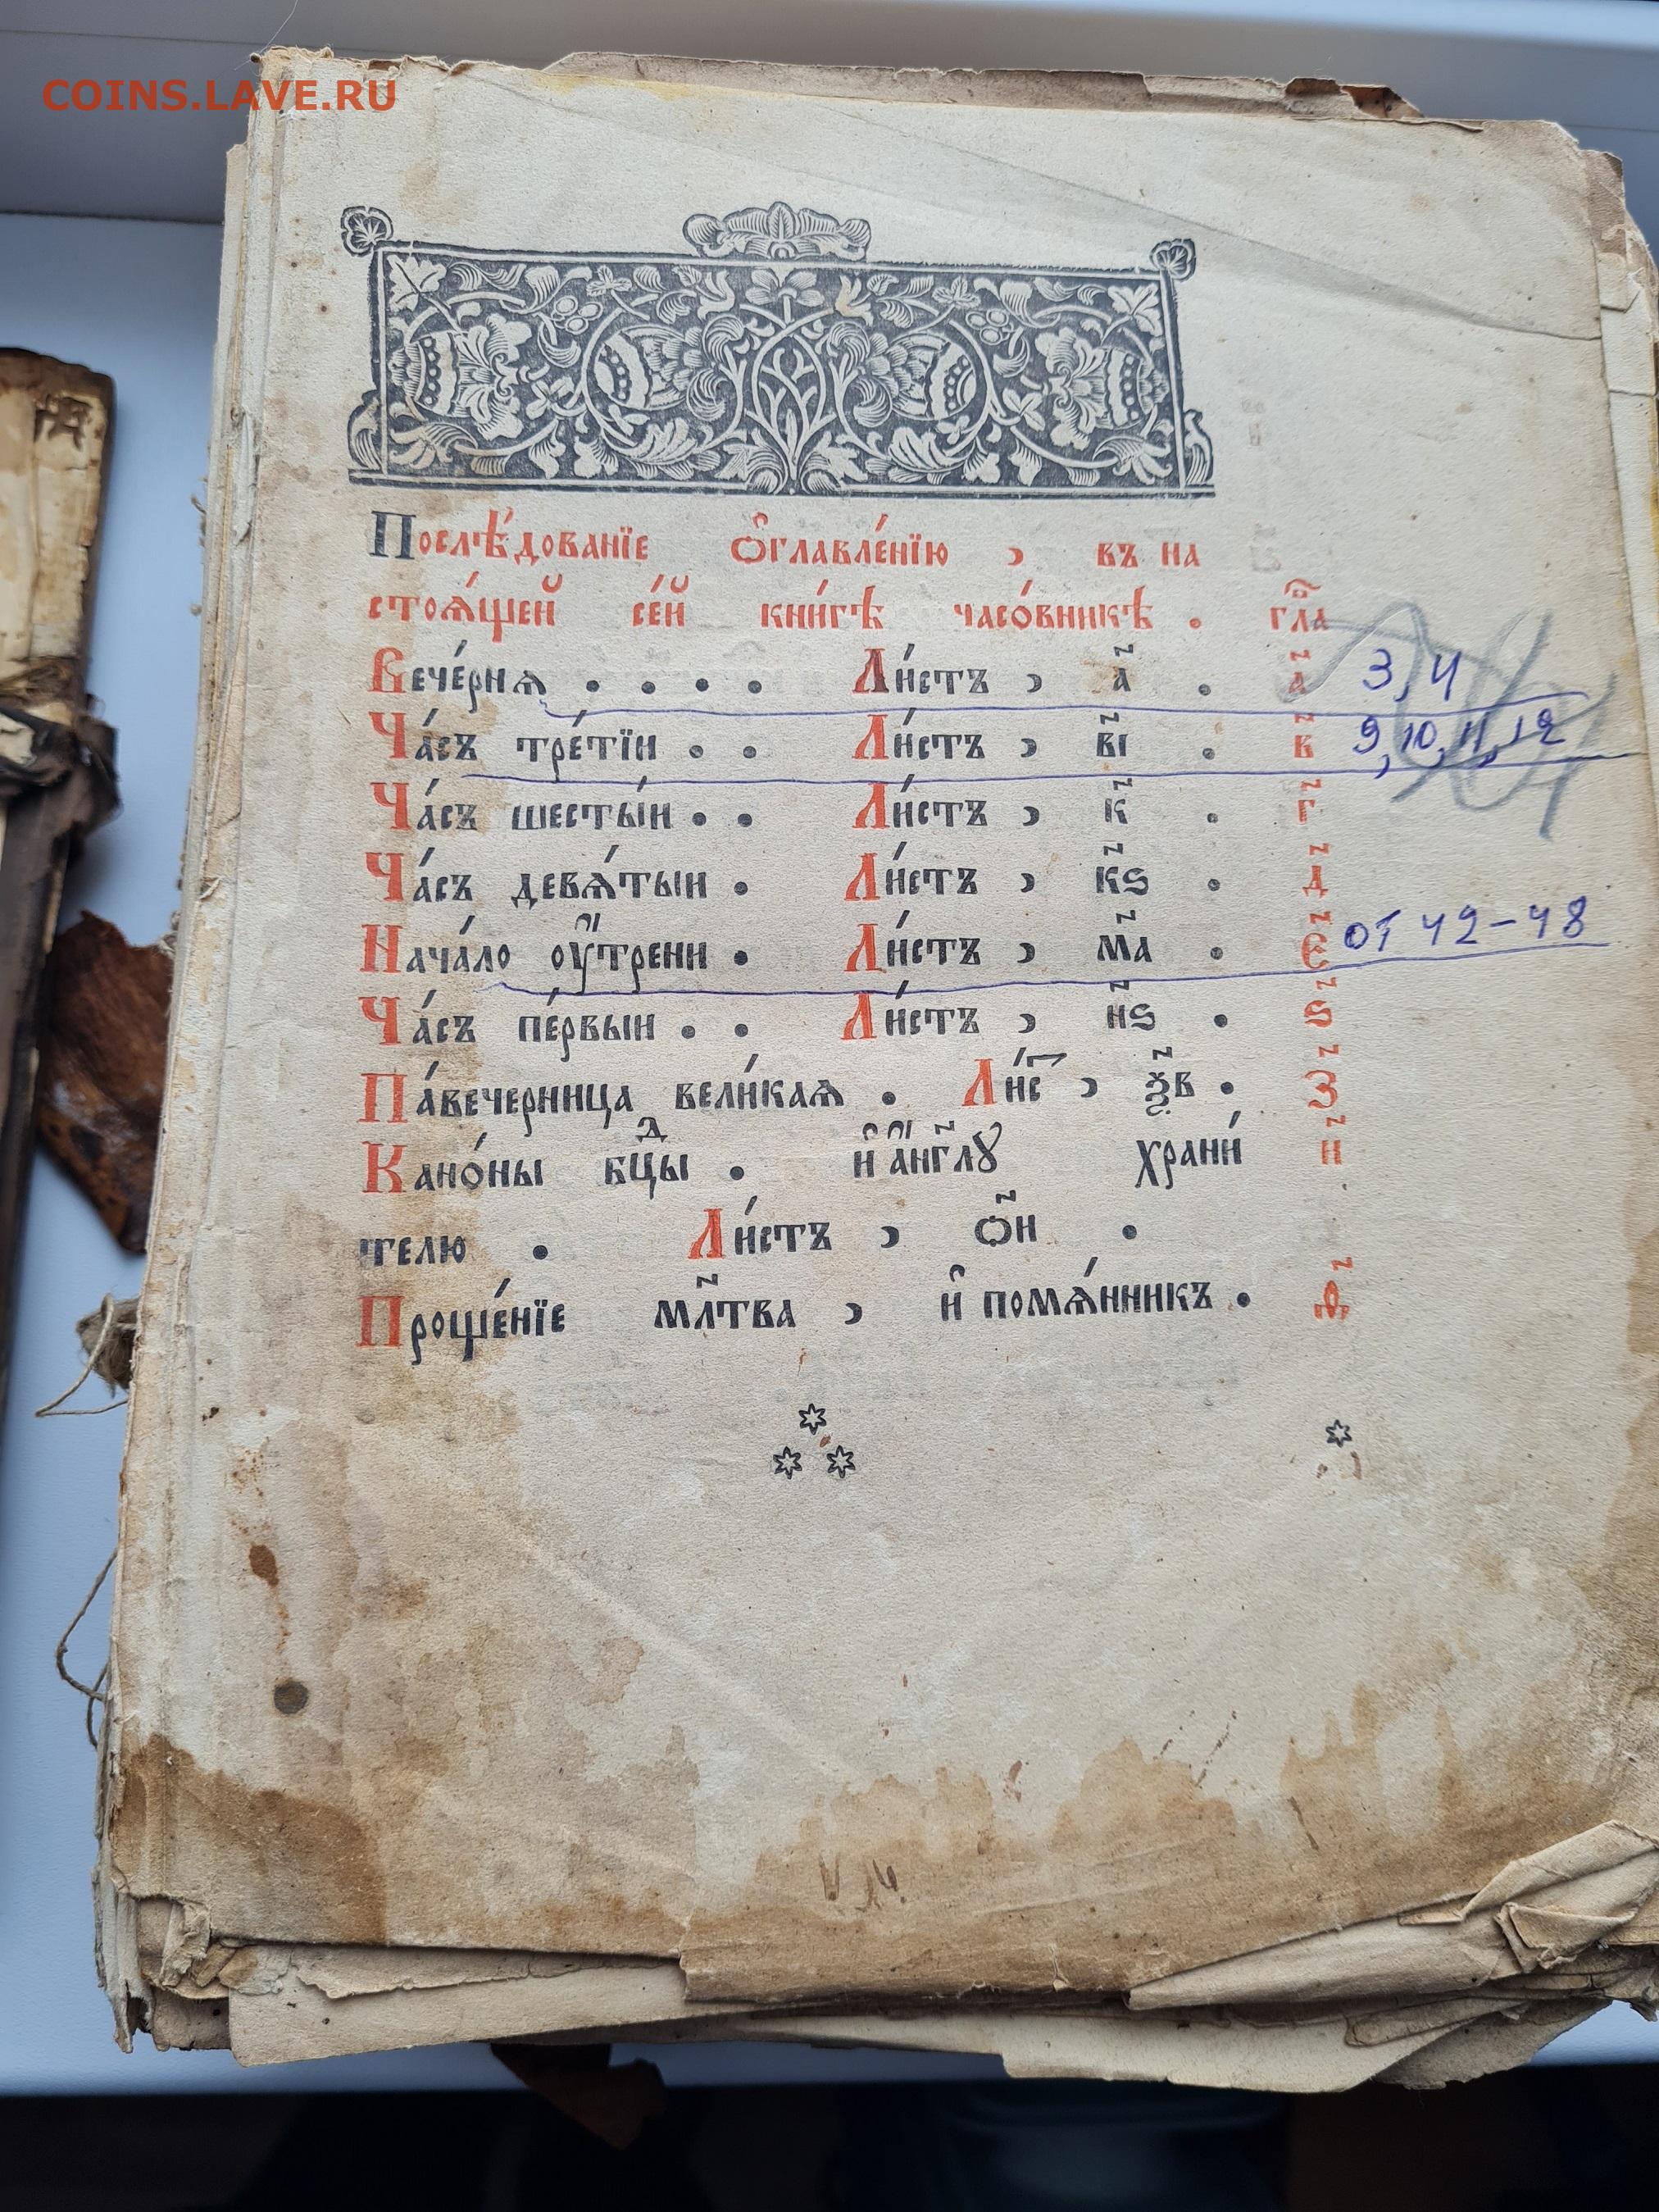 COINS.LAVE.RU
Послѣ́дованїе ѻ҆главле́нїю , въ на
стоѧ́щей се́й кни́гѣ часо́вникѣ . гл҃а
Вече́рнѧ . . . . Ли́стъ , а҃ . а҃ 3, 4
Ча́съ тре́тїи . . Ли́стъ , в҃і . в҃ 9, 10, 11, 12
Ча́съ шесты́и . . Ли́стъ , к҃ . г҃
Ча́съ девѧ́тыи . Ли́стъ , к҃ѕ . д҃
Нача́ло ѹ҆́трени . Ли́стъ , м҃а . є҃ от 42-48
Ча́съ пе́рвыи . . Ли́стъ , н҃ѕ . ѕ҃
Па́вечерница вели́каѧ . Ли́с , ѯ҃в . з҃
Кано́ны бцⷣы . и҆ а҆́нг҃лꙋ храни́ и҃
телю . Ли́стъ , ѻ҃и .
Проще́нїе мл҃тва , и҆ помѧ́нникъ . ѳ҃